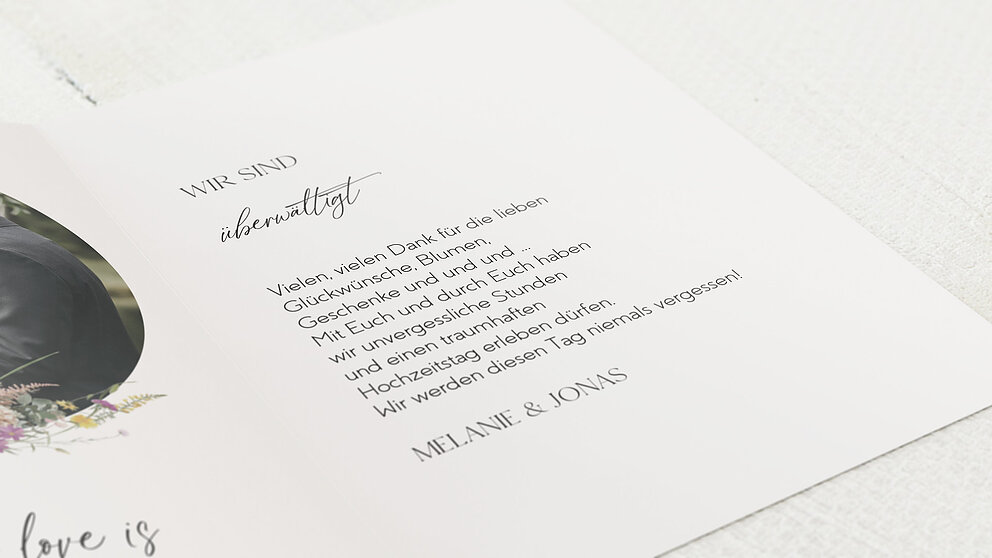 WIR SIND
überwältigt
Vielen, vielen Dank für die lieben
Glückwünsche, Blumen,
Geschenke und und und ...
Mit Euch und durch Euch haben
wir unvergessliche Stunden
und einen traumhaften
Hochzeitstag erleben dürfen.
Wir werden diesen Tag niemals vergessen!
MELANIE & JONAS
love is